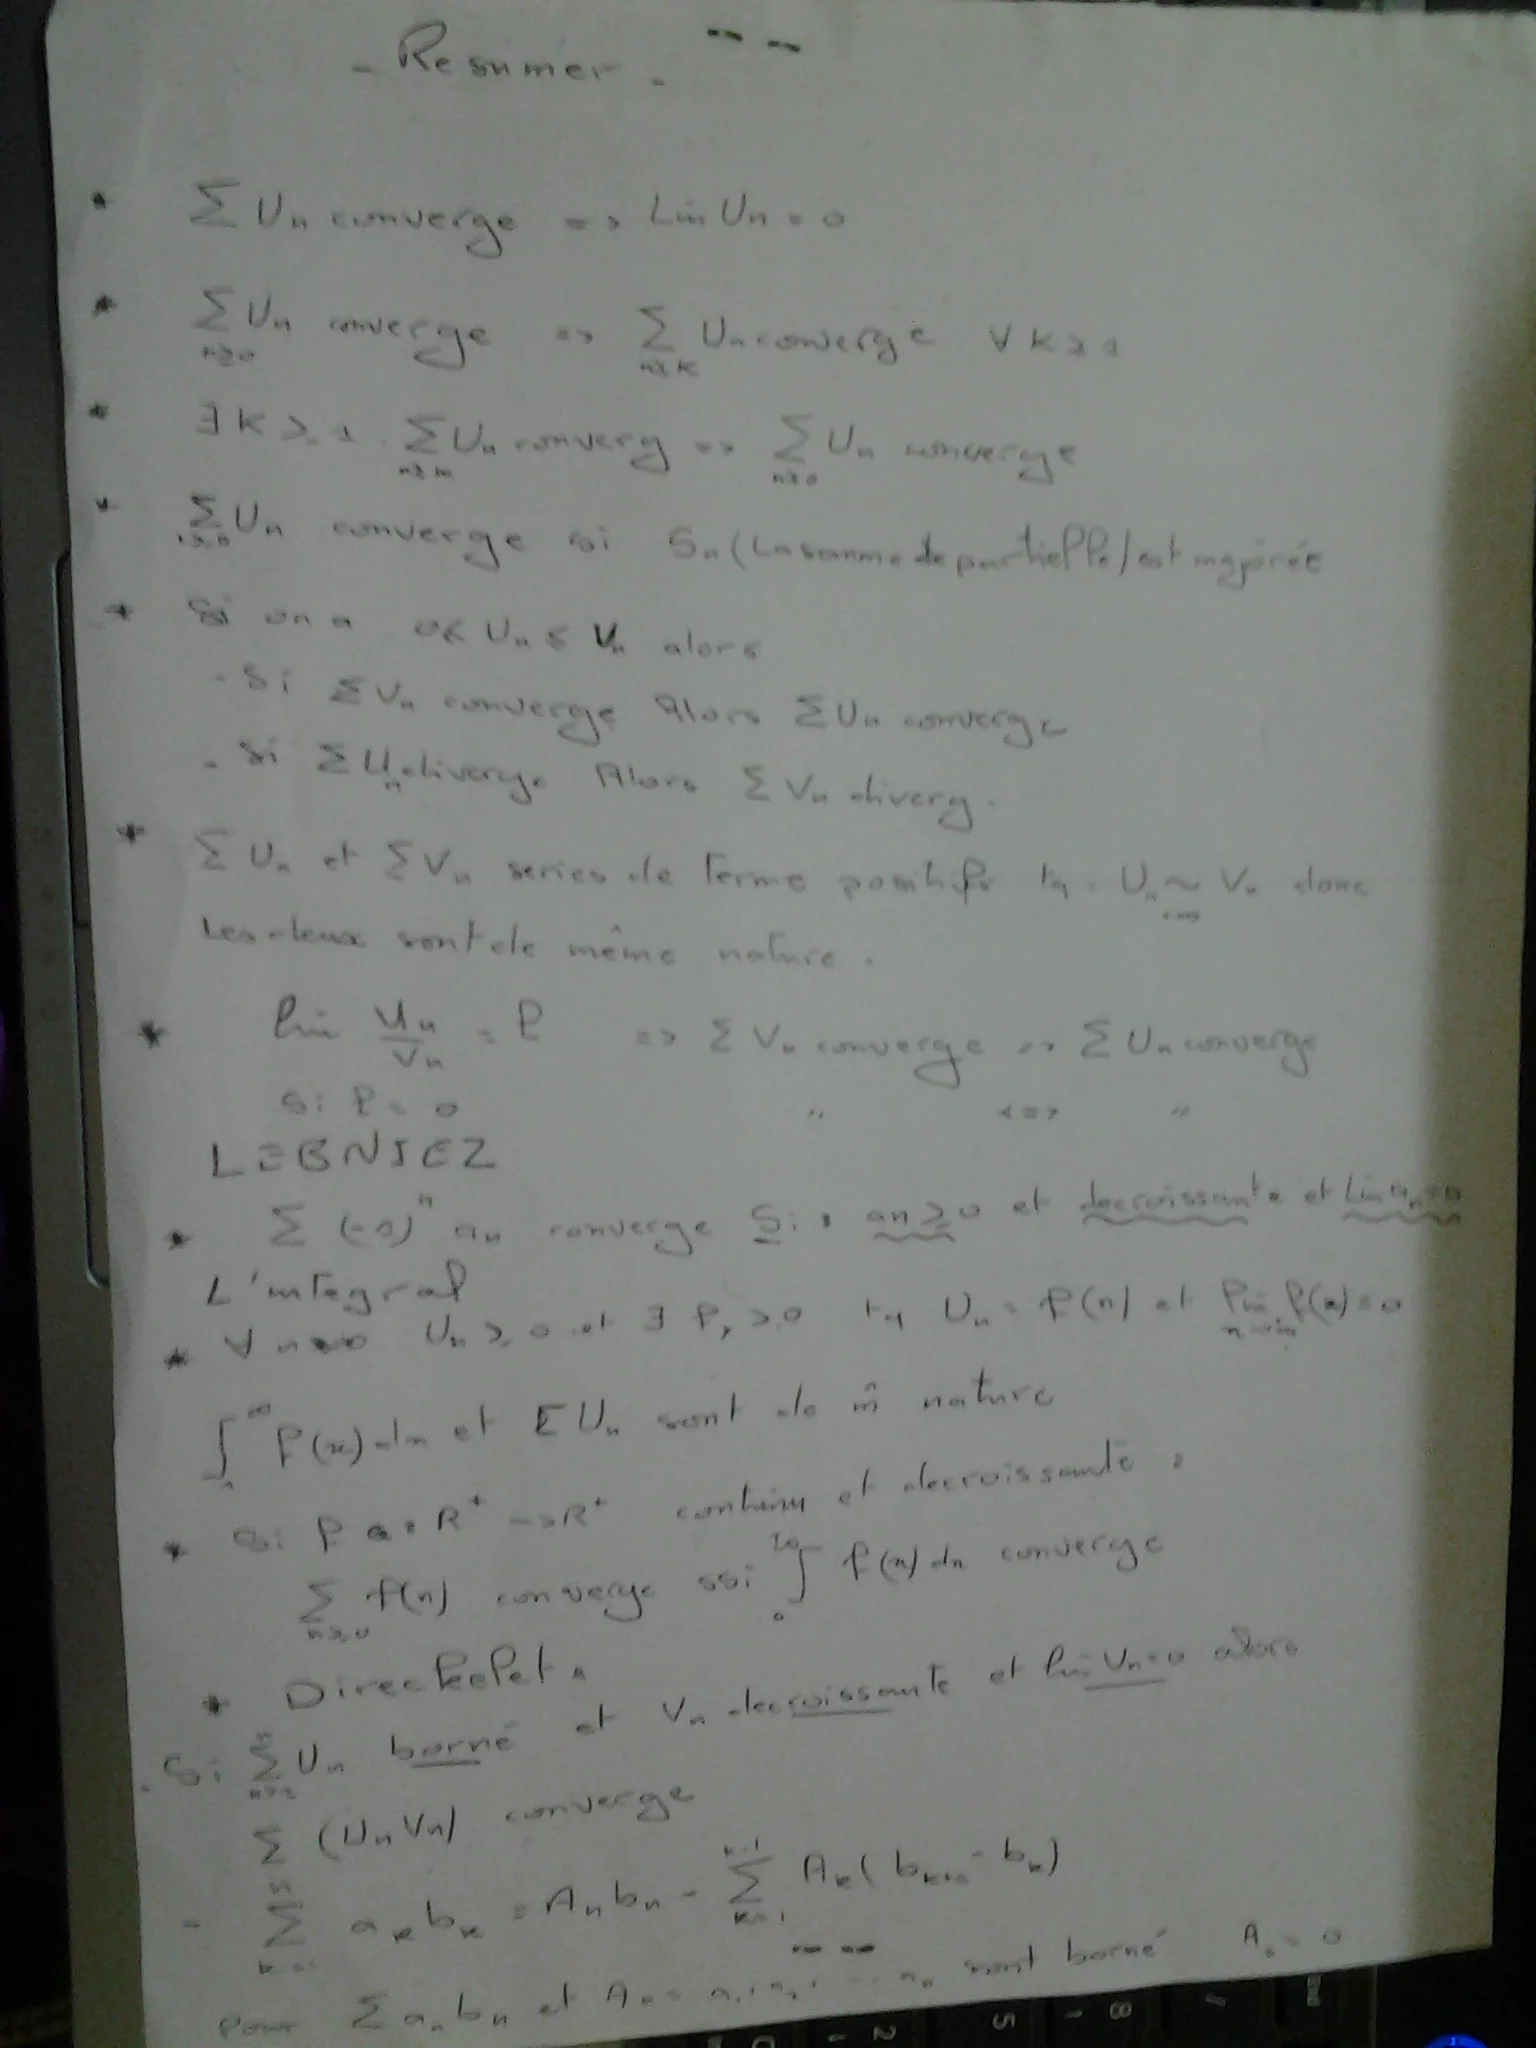 - Resumer -
* Σ Un converge => Lim Un = 0
* Σ n≥0 Un converge => Σ n≥k Un converge ∀ k ≥ 1
* ∃ k ≥ 1 . Σ Un converg => Σ n≥0 Un converge
* Σ n≥0 Un converge si Sn (La somme de partielle) est majorée
* Si on a 0 ≤ Un ≤ Vn alors
. Si Σ Vn converge Alors Σ Un converge
. Si Σ Un diverge Alors Σ Vn diverg.
* Σ Un et Σ Vn series de terme positifs tq . Un ~ Vn donc
Les deux sont de même nature .
* lim Un/Vn = l => Σ Vn converge => Σ Un converge
Si l = 0 " <=> "
LEBNIEZ
* Σ (-1)^n an converge Si : an ≥ 0 et decroissante et Lim an = 0
L'integral
* ∀ n Un ≥ 0 et ∃ f, ≥ 0 tq Un = f(n) et lim f(x) = 0
∫ ∞ f(x) dx et Σ Un sont de m̂ nature
* Si f : R+ -> R+ continu et decroissante :
Σ n≥0 f(n) converge ssi ∫ 0 f(x) dx converge
* Direckelet :
. Si Σ Un borné et Vn decroissante et lim Vn = 0 alors
Σ (Un Vn) converge
- Σ ak bk = An bn - Σ Ak ( bk+1 - bk )
Pour Σ an bn et An = a1 + a2 + ... an sont borné A0 = 0